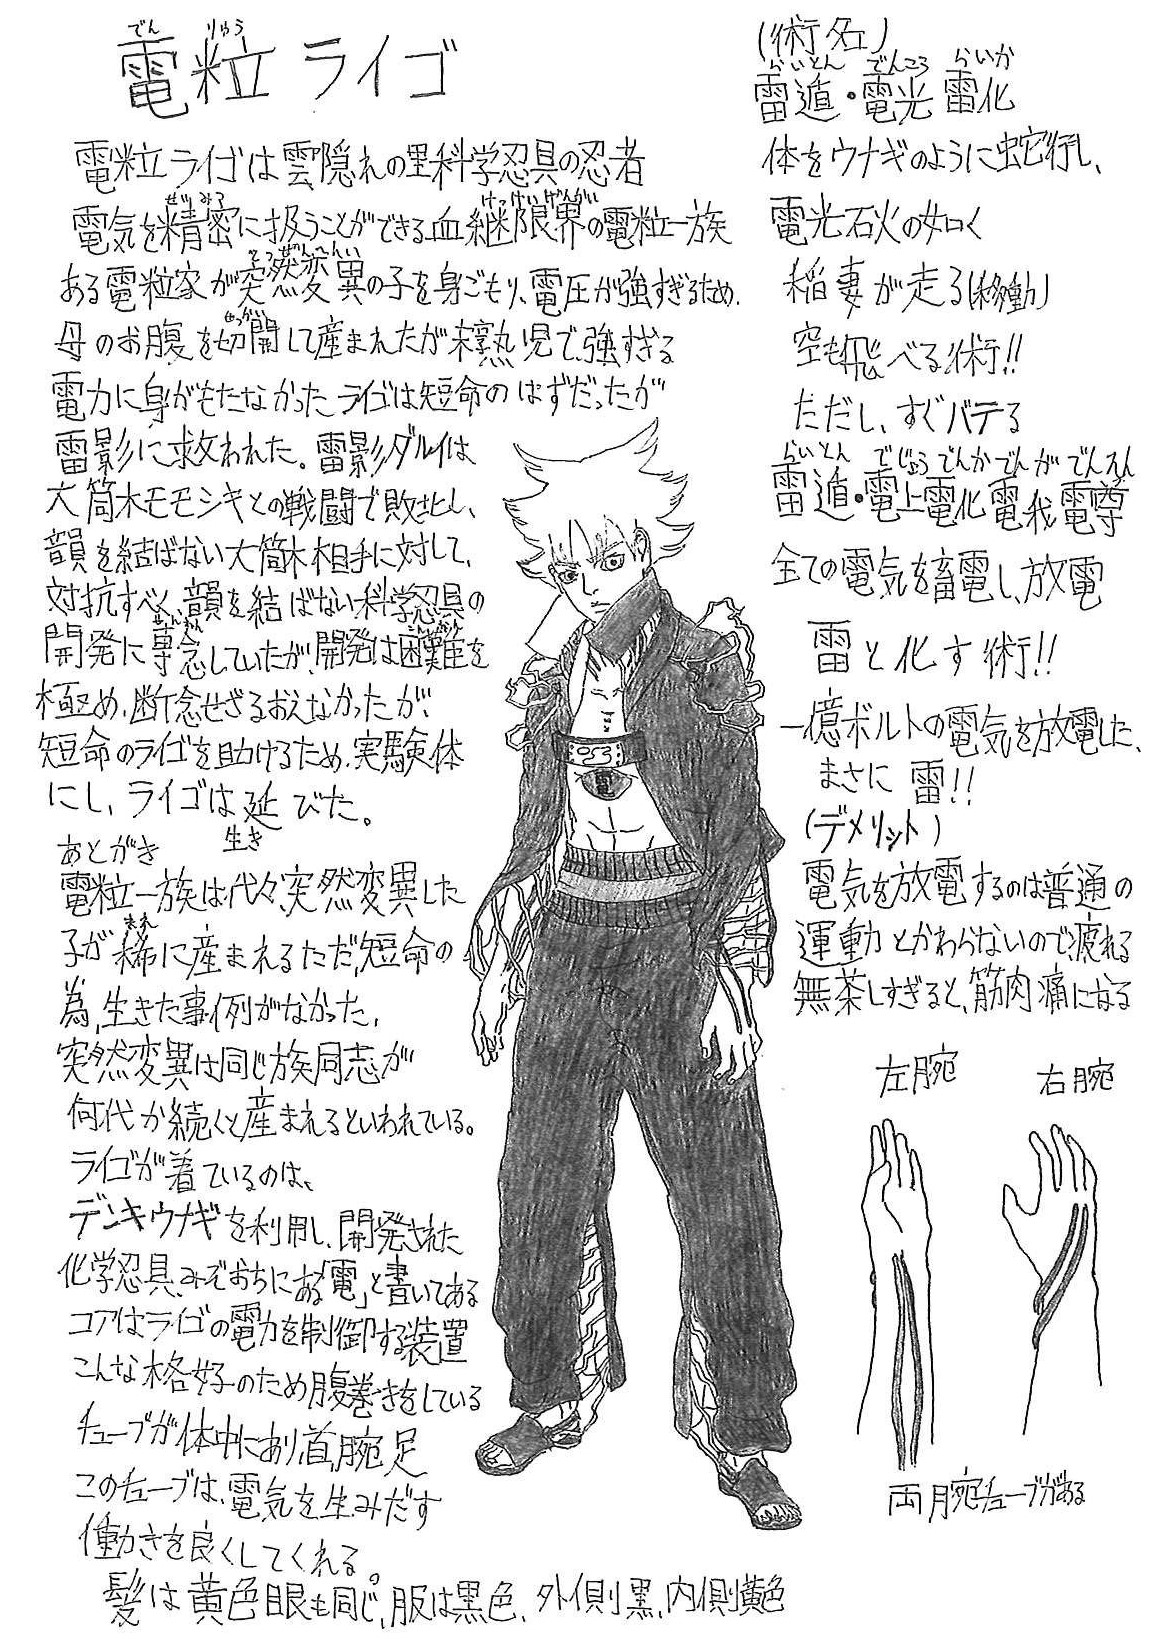 でん りゅう
電粒 ライゴ
電粒ライゴは雲隠れの里科学忍具の忍者
せいみつ けっけいげんかい
電気を精密に扱うことができる血継限界の電粒一族
とつぜんへんい
ある電粒家が突然変異の子を身ごもり、電圧が強すぎるため、
せっかい
母のお腹を切開して産まれたが未熟児で、強すぎる
電力に身がもたなかったライゴは短命のはずだったが
雷影に求われた。雷影ダルイは
大筒木モモシキとの戦闘で敗北し、
韻を結ばない大筒木相手に対して、
対抗すべく、韻を結ばない科学忍具の
開発に専念していたが、開発は困難を
極め、断念せざるおえなかったが、
短命のライゴを助けるため、実験体
にし、ライゴは延びた。
生き
あとがき
電粒一族は代々、突然変異した
まれ
子が稀に産まれるただ、短命の
為、生きた事例がなかった、
突然変異は同じ族同志が
何代か続くと産まれるといわれている。
ライゴが着ているのは、
デンキウナギを利用し、開発された
化学忍具、みぞおちにある「電」と書いてある
コアはライゴの電力を制御する装置
こんな格好のため腹巻きをしている
チューブが体中にあり、首、腕、足
このチューブは、電気を生みだす
働きを良くしてくれる。
髪は黄色眼も同じ、服は黒色、外側黒、内側黄色
(術名)
らいとん でんこう らいか
雷遁・電光 雷化
体をウナギのように蛇行し、
電光石火の如く
稲妻が走る(移動)
空も飛べる術!!
ただし、すぐバテる
らいとん でじょうでんかでんがでんそん
雷遁・電上電化電我電尊
全ての電気を蓄電し、放電
雷と化す術!!
一億ボルトの電気を放電した、
まさに 雷!!
(デメリット)
電気を放電するのは普通の
運動とかわらないので、疲れる
無茶しすぎると、筋肉痛になる
左腕
右腕
両腕チューブがある
電